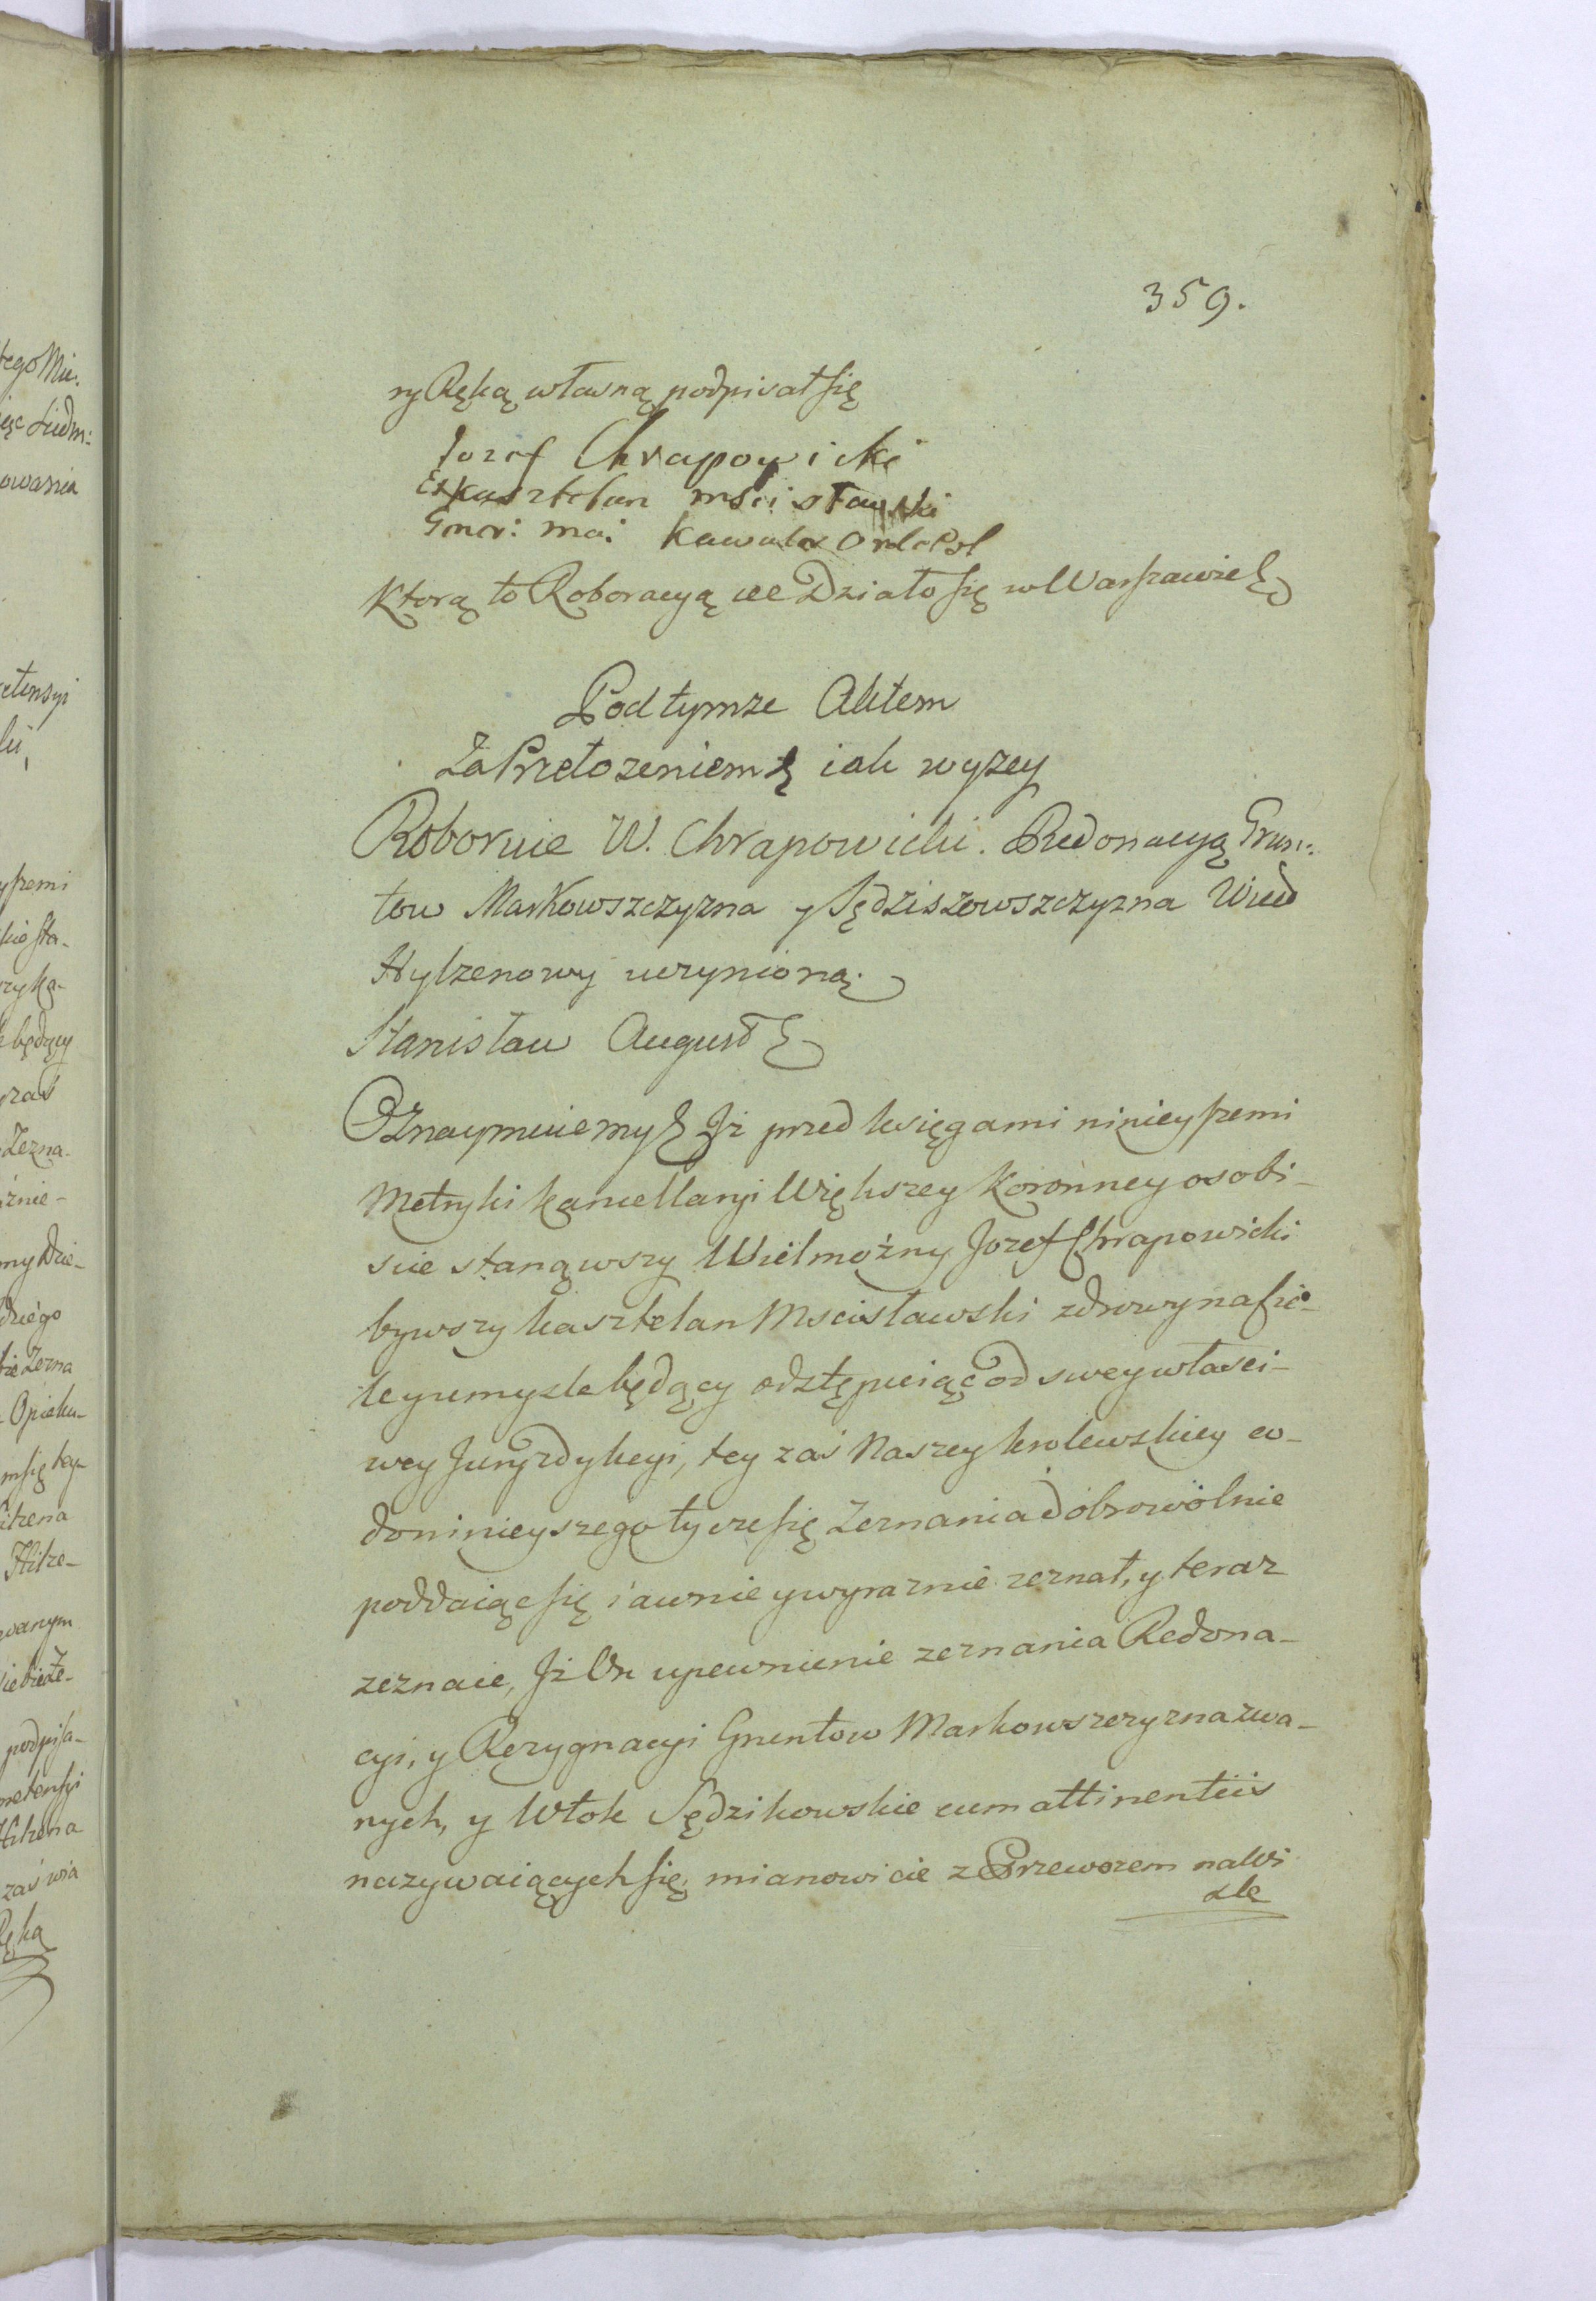 359.
ry Ręką własną podpisał się
Jozef Chrapowicki
Exkasztelan mscisławski
Gner: ma: Kawaler Orde Pol
Ktorą to Roborącyą &c Działo się w Warszawie &
Pod tymze Aktem
Za Przełozeniem & iak wyzey
Roboruie W. Chrapowicki. Redonacyą Grun:
tow Markowszczyzna y Sędziszowszczyzna Wied
Hylzenowy uczynioną.
Stanisław August &
Oznaymuiemy & Jż przed księgami ninieyszemi
Metryki kancellaryi Większey Koronney osobi-
scie stanąwszy Wielmożny Jozef Chrapowicki
bywszy kasztelan Mscisławski zdrowy na cie-
le y umysle będący odstępuiąc od swey własci-
wey Juryzdykcyi, tey zaś Naszey krolewskiey co
do ninieyszego tycze się Zeznania dobrowolnie
poddaiąc się iawnie y wyraznie zeznał, y teraz
zeznaie, Jż On upewnienie zeznania Redona-
cyi, y Rezygnacyi Gruntow Markowszczyzna zwa-
nych, y Włok Sędzikowskie cum attinentiis
nazywaiących się, mianowicie z Przewozem na Wi
sle
tego Mie.
owania
etensyi
yszemi
kie sta-
będący
zaś
Zezna-
żnie-
my Dzie-
dniego
bie Zezna
Opieku-
m się tey-
Hilze-
wanym
podpisa-
pretensyi
zaś wia
Ręką